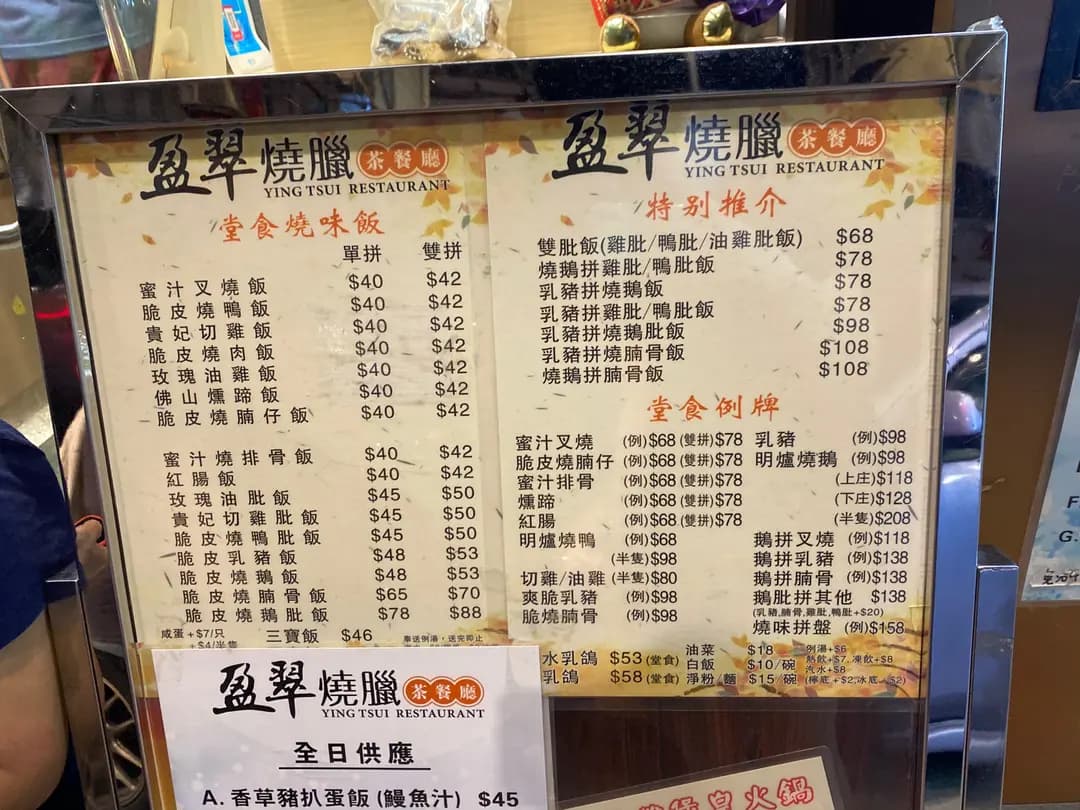 盈翠燒臘 茶餐廳
YING TSUI RESTAURANT
堂食燒味飯
單拼 雙拼
蜜汁叉燒飯 $40 $42
脆皮燒鴨飯 $40 $42
貴妃切雞飯 $40 $42
脆皮燒肉飯 $40 $42
玫瑰油雞飯 $40 $42
佛山燻蹄飯 $40 $42
脆皮燒腩仔飯 $40 $42
蜜汁燒排骨飯 $40 $42
紅腸飯 $40 $42
玫瑰油肶飯 $45 $50
貴妃切雞肶飯 $45 $50
脆皮燒鴨肶飯 $45 $50
脆皮乳豬飯 $48 $53
脆皮燒鵝飯 $48 $53
脆皮燒腩骨飯 $65 $70
脆皮燒鵝肶飯 $78 $88
咸蛋+$7/只 三寶飯 $46 奉送例湯，送完即止
+$4/半隻
盈翠燒臘 茶餐廳
YING TSUI RESTAURANT
特別推介
雙肶飯(雞肶/鴨肶/油雞肶飯) $68
燒鵝拼雞肶/鴨肶飯 $78
乳豬拼燒鵝飯 $78
乳豬拼雞肶/鴨肶飯 $78
乳豬拼燒鵝肶飯 $98
乳豬拼燒腩骨飯 $108
燒鵝拼腩骨飯 $108
堂食例牌
蜜汁叉燒 (例)$68 (雙拼)$78 乳豬 (例)$98
脆皮燒腩仔 (例)$68 (雙拼)$78 明爐燒鵝 (例)$98
蜜汁排骨 (例)$68 (雙拼)$78 (上庄)$118
燻蹄 (例)$68 (雙拼)$78 (下庄)$128
紅腸 (例)$68 (雙拼)$78 (半隻)$208
明爐燒鴨 (例)$68 鵝拼叉燒 (例)$118
(半隻)$98 鵝拼乳豬 (例)$138
切雞/油雞 (半隻)$80 鵝拼腩骨 (例)$138
爽脆乳豬 (例)$98 鵝肶拼其他 $138
(乳豬,腩骨,雞肶,鴨肶+$20)
脆燒腩骨 (例)$98 燒味拼盤 (例)$158
水乳鴿 $53 (堂食) 油菜 $18 例湯+$6
乳鴿 $58 (堂食) 白飯 $10/碗 熱飲+$7, 凍飲+$8
汽水+$8
淨粉/麵 $15/碗 (檸底+$2,冰底+$2)
盈翠燒臘 茶餐廳
YING TSUI RESTAURANT
全日供應
A. 香草豬扒蛋飯 (鰻魚汁) $45
煲皇火鍋